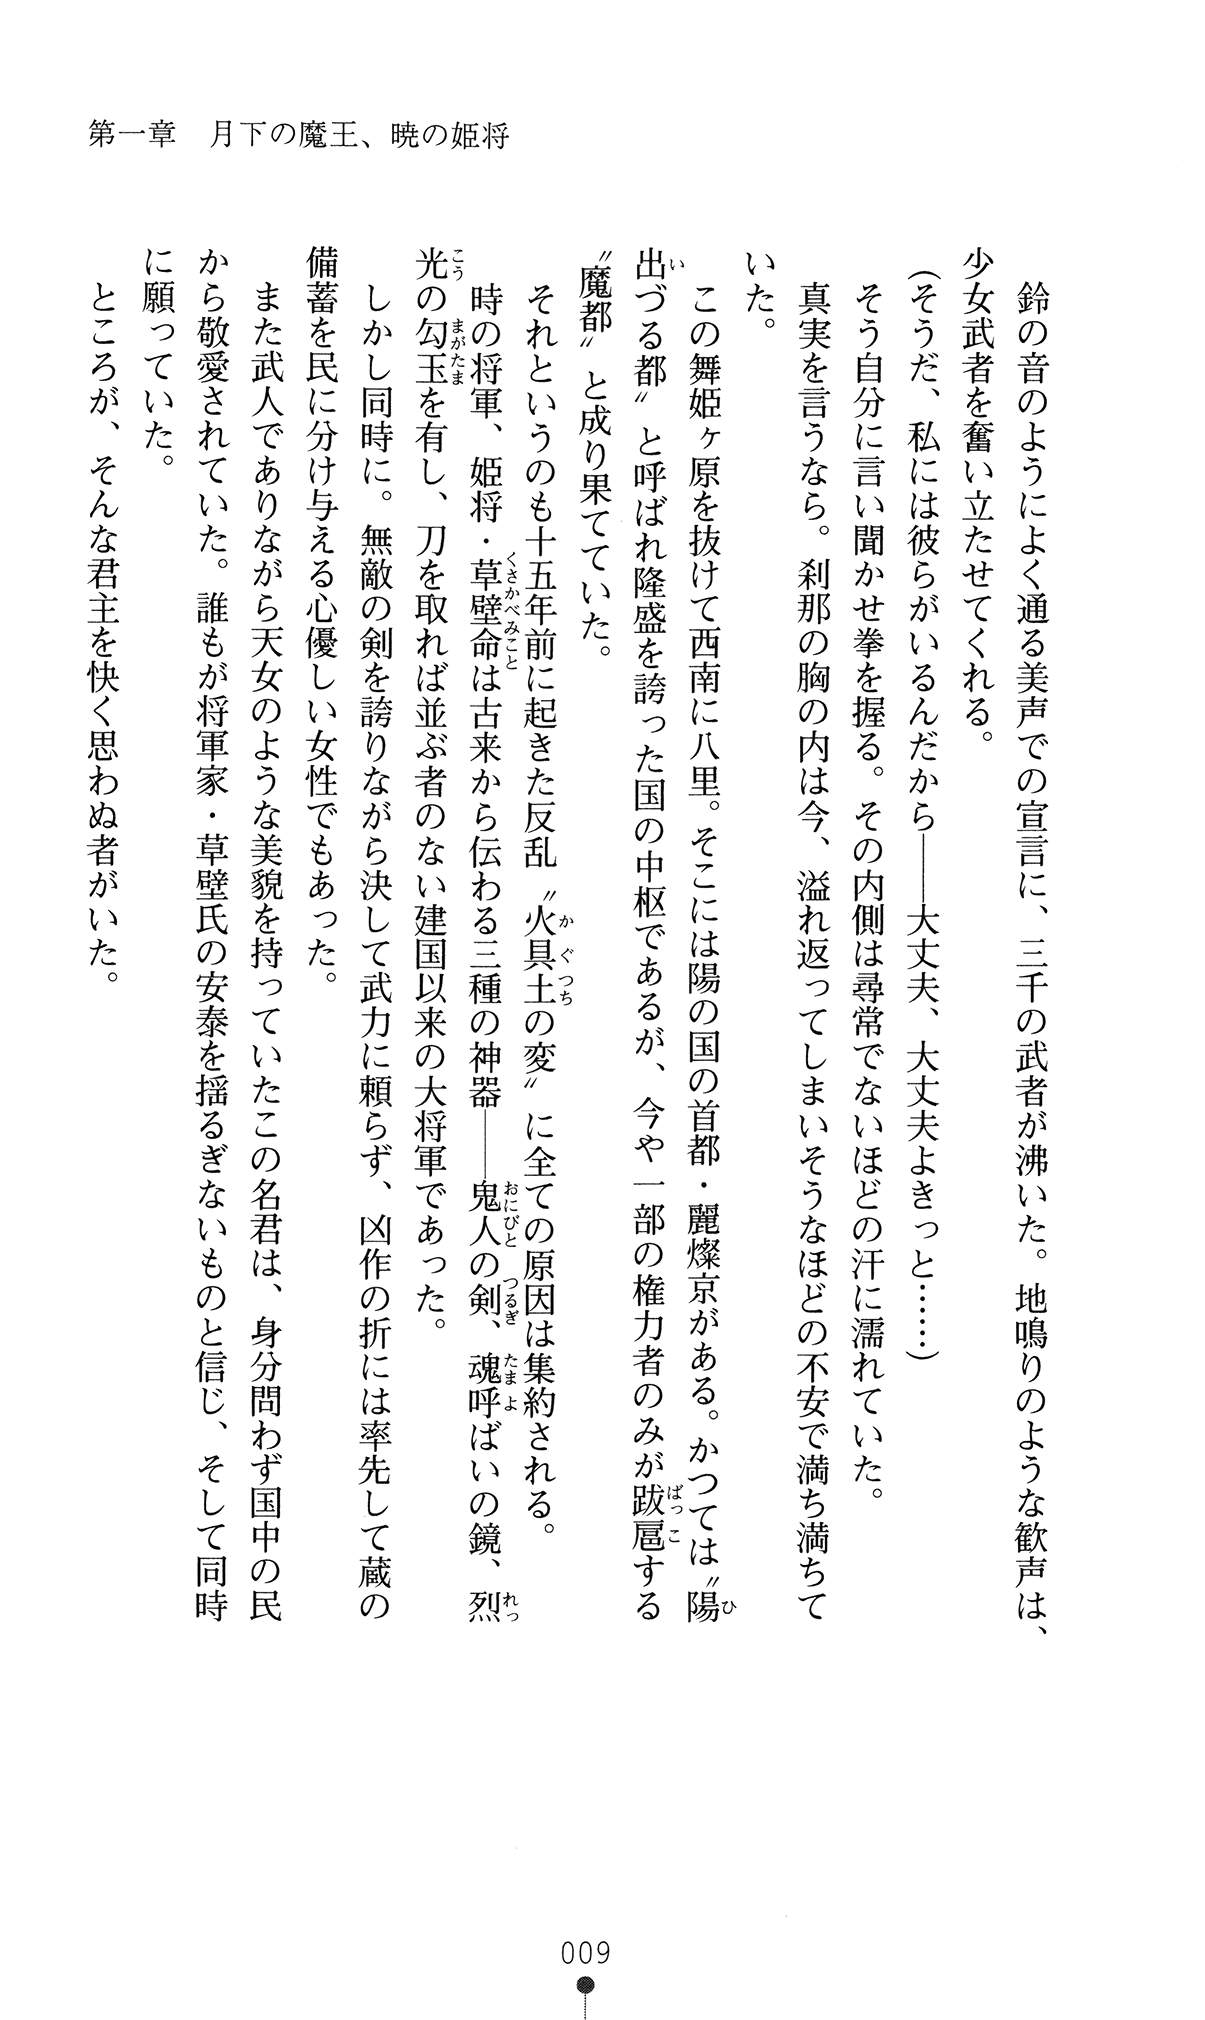 第一章　月下の魔王、暁の姫将
鈴の音のようによく通る美声での宣言に、三千の武者が沸いた。地鳴りのような歓声は、
少女武者を奮い立たせてくれる。
（そうだ、私には彼らがいるんだから――大丈夫、大丈夫よきっと……）
そう自分に言い聞かせ拳を握る。その内側は尋常でないほどの汗に濡れていた。
真実を言うなら。刹那の胸の内は今、溢れ返ってしまいそうなほどの不安で満ち満ちて
いた。
この舞姫ヶ原を抜けて西南に八里。そこには陽の国の首都・麗燦京がある。かつては〝陽
出づる都〟と呼ばれ隆盛を誇った国の中枢であるが、今や一部の権力者のみが跋扈する
〝魔都〟と成り果てていた。
それというのも十五年前に起きた反乱〝火具土の変〟に全ての原因は集約される。
時の将軍、姫将・草壁命は古来から伝わる三種の神器――鬼人の剣、魂呼ばいの鏡、烈
光の勾玉を有し、刀を取れば並ぶ者のない建国以来の大将軍であった。
しかし同時に。無敵の剣を誇りながら決して武力に頼らず、凶作の折には率先して蔵の
備蓄を民に分け与える心優しい女性でもあった。
また武人でありながら天女のような美貌を持っていたこの名君は、身分問わず国中の民
から敬愛されていた。誰もが将軍家・草壁氏の安泰を揺るぎないものと信じ、そして同時
に願っていた。
ところが、そんな君主を快く思わぬ者がいた。
009